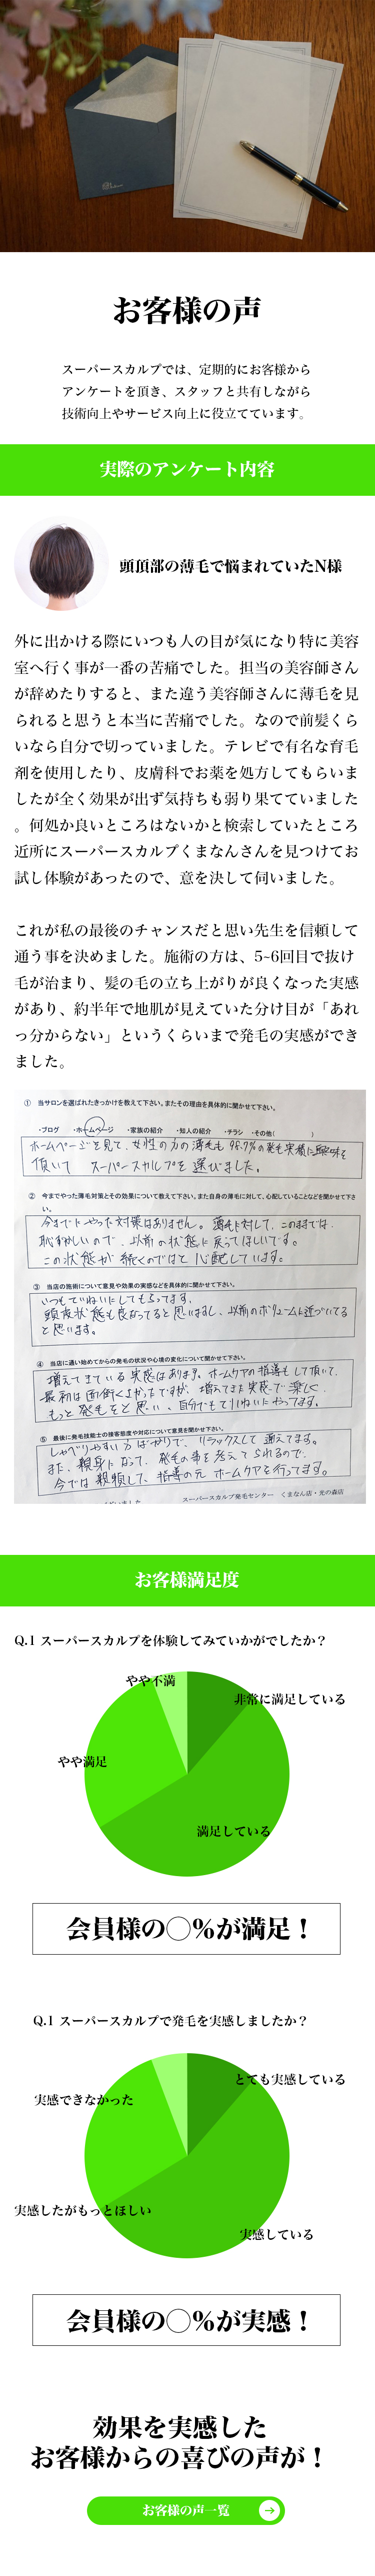 お客様の声
スーパースカルプでは、定期的にお客様から
アンケートを頂き、スタッフと共有しながら
技術向上やサービス向上に役立てています。
実際のアンケート内容
頭頂部の薄毛で悩まれていたN様
外に出かける際にいつも人の目が気になり特に美容
室へ行く事が一番の苦痛でした。担当の美容師さん
が辞めたりすると、また違う美容師さんに薄毛を見
られると思うと本当に苦痛でした。なので前髪くら
いなら自分で切っていました。テレビで有名な育毛
剤を使用したり、皮膚科でお薬を処方してもらいま
したが全く効果が出ず気持ちも弱り果てていました
。何処か良いところはないかと検索していたところ
近所にスーパースカルプくまなんさんを見つけてお
試し体験があったので、意を決して伺いました。
これが私の最後のチャンスだと思い先生を信頼して
通う事を決めました。施術の方は、5~6回目で抜け
毛が治まり、髪の毛の立ち上がりが良くなった実感
があり、約半年で地肌が見えていた分け目が「あれ
っ分からない」というくらいまで発毛の実感ができ
ました。
① 当サロンを選ばれたきっかけを教えて下さい。またその理由を具体的に聞かせて下さい。
・ブログ ・ホームページ ・家族の紹介 ・知人の紹介 ・チラシ ・その他( )
ホームページを見て、女性の方の薄毛も98.7%の発毛実績に興味を
頂いて スーパースカルプを選びました。
② 今までやった薄毛対策とその効果について教えて下さい。また自身の薄毛に対して、心配していることなどを聞かせて下さ
い。
今までにやった対策はありません。薄毛に対して、このままでは
恥ずかしいので、以前の状態に戻ってほしいです。
この状態が続くのではと心配しています。
③ 当店の施術について意見や効果の実感などを具体的に聞かせて下さい。
いつもていねいにしてもらってます。
頭皮状態も良くなってると思いますし、以前のボリュームに近づいてる
と思います。
④ 当店に通い始めてからの発毛の状況や心境の変化について聞かせて下さい。
増えてきている実感はあります。ホームケアの指導もして頂いて、
最初は面倒くさかったですが、増えてきた実感で楽しく
もっと発毛をと思い、自分でもていねいにやってます。
⑤ 最後に発毛技能士の接客態度や対応について意見を聞かせて下さい。
しゃべりやすい方ばかりで、リラックスして通えてます。
また、親身になって、発毛の事を考えてられるので、
今では信頼して、指導の元 ホームケアを行ってます。
スーパースカルプ発毛センター くまなん店・光の森店
お客様満足度
Q.1 スーパースカルプを体験してみていかがでしたか？
やや不満
非常に満足している
やや満足
満足している
会員様の◯％が満足！
Q.1 スーパースカルプで発毛を実感しましたか？
とても実感している
実感できなかった
実感したがもっとほしい
実感している
会員様の◯％が実感！
効果を実感した
お客様からの喜びの声が！
お客様の声一覧